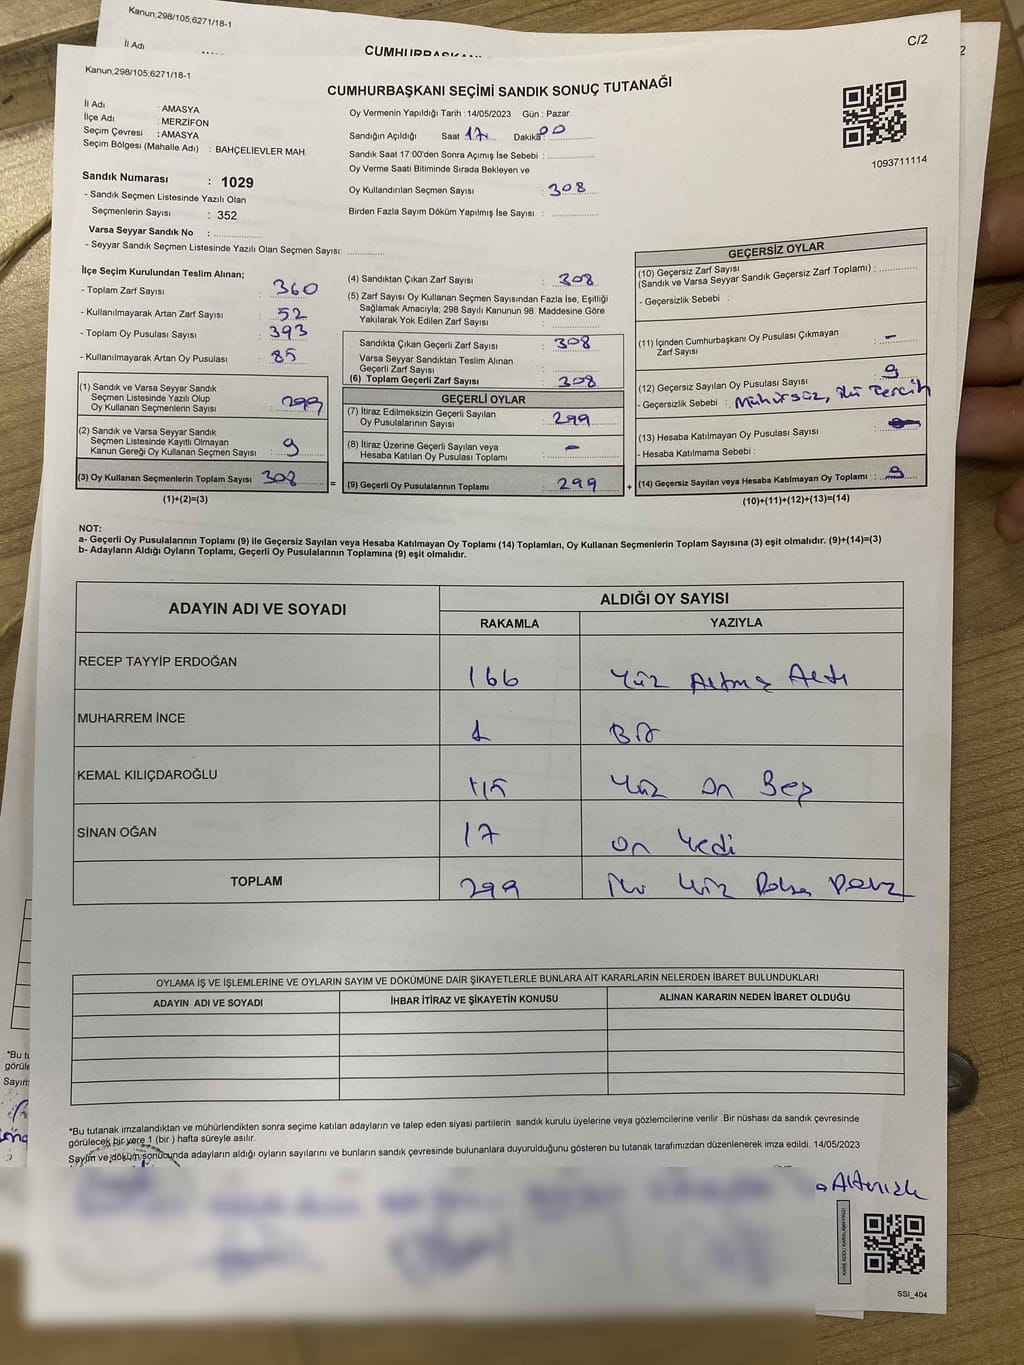 Kanun;298/105;6271/18-1
İl Adı
CUMHURBAŞKANI
C/2
2
Kanun;298/105;6271/18-1
CUMHURBAŞKANI SEÇİMİ SANDIK SONUÇ TUTANAĞI
İl Adı : AMASYA
İlçe Adı : MERZİFON
Seçim Çevresi : AMASYA
Seçim Bölgesi (Mahalle Adı) : BAHÇELİEVLER MAH.
Oy Vermenin Yapıldığı Tarih :14/05/2023 Gün : Pazar
Sandığın Açıldığı Saat 17 Dakika 00
Sandık Saat 17:00'den Sonra Açımış İse Sebebi :
Oy Verme Saati Bitiminde Sırada Bekleyen ve
Oy Kullandırılan Seçmen Sayısı : 308
Birden Fazla Sayım Döküm Yapılmış İse Sayısı :
1093711114
Sandık Numarası : 1029
- Sandık Seçmen Listesinde Yazılı Olan
Seçmenlerin Sayısı : 352
Varsa Seyyar Sandık No :
- Seyyar Sandık Seçmen Listesinde Yazılı Olan Seçmen Sayısı:
İlçe Seçim Kurulundan Teslim Alınan;
- Toplam Zarf Sayısı : 360
- Kullanılmayarak Artan Zarf Sayısı : 52
- Toplam Oy Pusulası Sayısı : 393
- Kullanılmayarak Artan Oy Pusulası : 85
(1) Sandık ve Varsa Seyyar Sandık
Seçmen Listesinde Yazılı Olup
Oy Kullanan Seçmenlerin Sayısı : 299
(2) Sandık ve Varsa Seyyar Sandık
Seçmen Listesinde Kayıtlı Olmayan
Kanun Gereği Oy Kullanan Seçmen Sayısı : 9
(3) Oy Kullanan Seçmenlerin Toplam Sayısı 308 =
(1)+(2)=(3)
(4) Sandıktan Çıkan Zarf Sayısı : 308
(5) Zarf Sayısı Oy Kullanan Seçmen Sayısından Fazla İse, Eşitliği
Sağlamak Amacıyla; 298 Sayılı Kanunun 98. Maddesine Göre
Yakılarak Yok Edilen Zarf Sayısı :
Sandıkta Çıkan Geçerli Zarf Sayısı : 308
Varsa Seyyar Sandıktan Teslim Alınan
Geçerli Zarf Sayısı :
(6) Toplam Geçerli Zarf Sayısı : 308
GEÇERLİ OYLAR
(7) İtiraz Edilmeksizin Geçerli Sayılan
Oy Pusulalarının Sayısı : 299
(8) İtiraz Üzerine Geçerli Sayılan veya
Hesaba Katılan Oy Pusulası Toplamı : -
(9) Geçerli Oy Pusulalarının Toplamı : 299 +
GEÇERSİZ OYLAR
(10) Geçersiz Zarf Sayısı
(Sandık ve Varsa Seyyar Sandık Geçersiz Zarf Toplamı) :
- Geçersizlik Sebebi :
(11) İçinden Cumhurbaşkanı Oy Pusulası Çıkmayan
Zarf Sayısı : -
(12) Geçersiz Sayılan Oy Pusulası Sayısı : 9
- Geçersizlik Sebebi : Mühürsüz, İki Tercih
(13) Hesaba Katılmayan Oy Pusulası Sayısı :
- Hesaba Katılmama Sebebi :
(14) Geçersiz Sayılan veya Hesaba Katılmayan Oy Toplamı : 9
(10)+(11)+(12)+(13)=(14)
NOT:
a- Geçerli Oy Pusulalarının Toplamı (9) ile Geçersiz Sayılan veya Hesaba Katılmayan Oy Toplamı (14) Toplamları, Oy Kullanan Seçmenlerin Toplam Sayısına (3) eşit olmalıdır. (9)+(14)=(3)
b- Adayların Aldığı Oyların Toplamı, Geçerli Oy Pusulalarının Toplamına (9) eşit olmalıdır.
ADAYIN ADI VE SOYADI
ALDIĞI OY SAYISI
RAKAMLA YAZIYLA
RECEP TAYYİP ERDOĞAN 166 Yüz Altmış Altı
MUHARREM İNCE 1 Bir
KEMAL KILIÇDAROĞLU 115 Yüz On Beş
SİNAN OĞAN 17 On Yedi
TOPLAM 299 İki Yüz Doksan Dokuz
OYLAMA İŞ VE İŞLEMLERİNE VE OYLARIN SAYIM VE DÖKÜMÜNE DAİR ŞİKAYETLERLE BUNLARA AİT KARARLARIN NELERDEN İBARET BULUNDUKLARI
ADAYIN ADI VE SOYADI İHBAR İTİRAZ VE ŞİKAYETİN KONUSU ALINAN KARARIN NEDEN İBARET OLDUĞU
*Bu tutanak imzalandıktan ve mühürlendikten sonra seçime katılan adayların ve talep eden siyasi partilerin sandık kurulu üyelerine veya gözlemcilerine verilir .Bir nüshası da sandık çevresinde
görülecek bir yere 1 (bir ) hafta süreyle asılır.
Sayım ve döküm sonucunda adayların aldığı oyların sayılarını ve bunların sandık çevresinde bulunanlara duyurulduğunu gösteren bu tutanak tarafımızdan düzenlenerek imza edildi. 14/05/2023
*Bu tu
görüle
Sayım
KARE KODU KARALAMAYINIZ!
SSİ_404